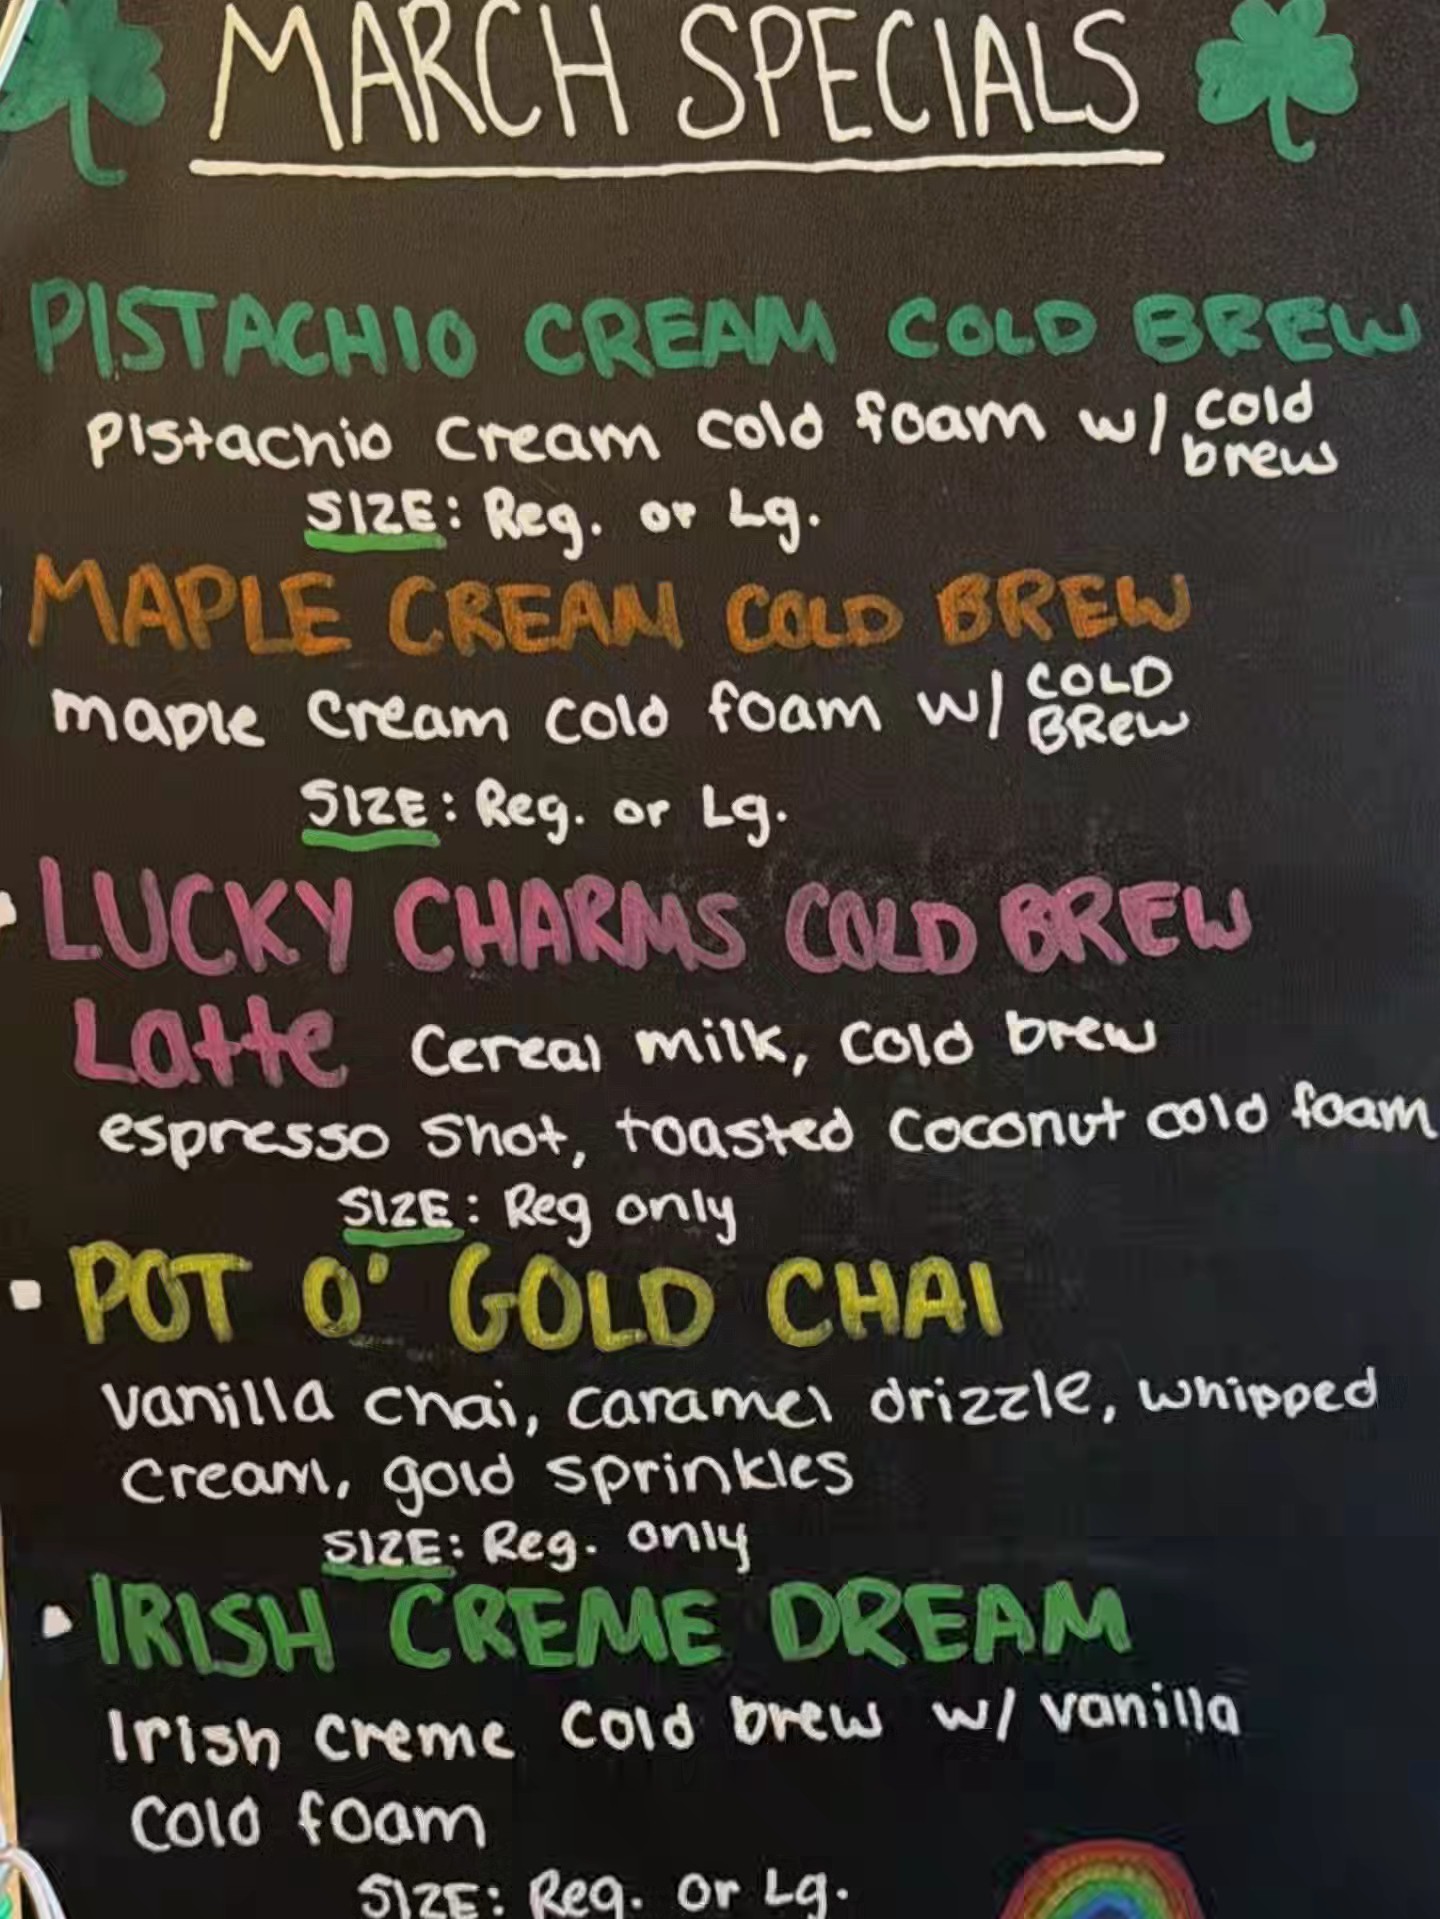 MARCH SPECIALS
PISTACHIO CREAM COLD BREW
Pistachio cream cold foam w/ cold brew
SIZE: Reg. or Lg.
MAPLE CREAM COLD BREW
maple cream cold foam w/ COLD BREW
SIZE: Reg. or Lg.
LUCKY CHARMS COLD BREW
Latte Cereal milk, cold brew
espresso shot, toasted coconut cold foam
SIZE: Reg only
POT O' GOLD CHAI
vanilla chai, caramel drizzle, whipped
cream, gold sprinkles
SIZE: Reg. only
IRISH CREME DREAM
Irish creme cold brew w/ vanilla
cold foam
SIZE: Reg. or Lg.